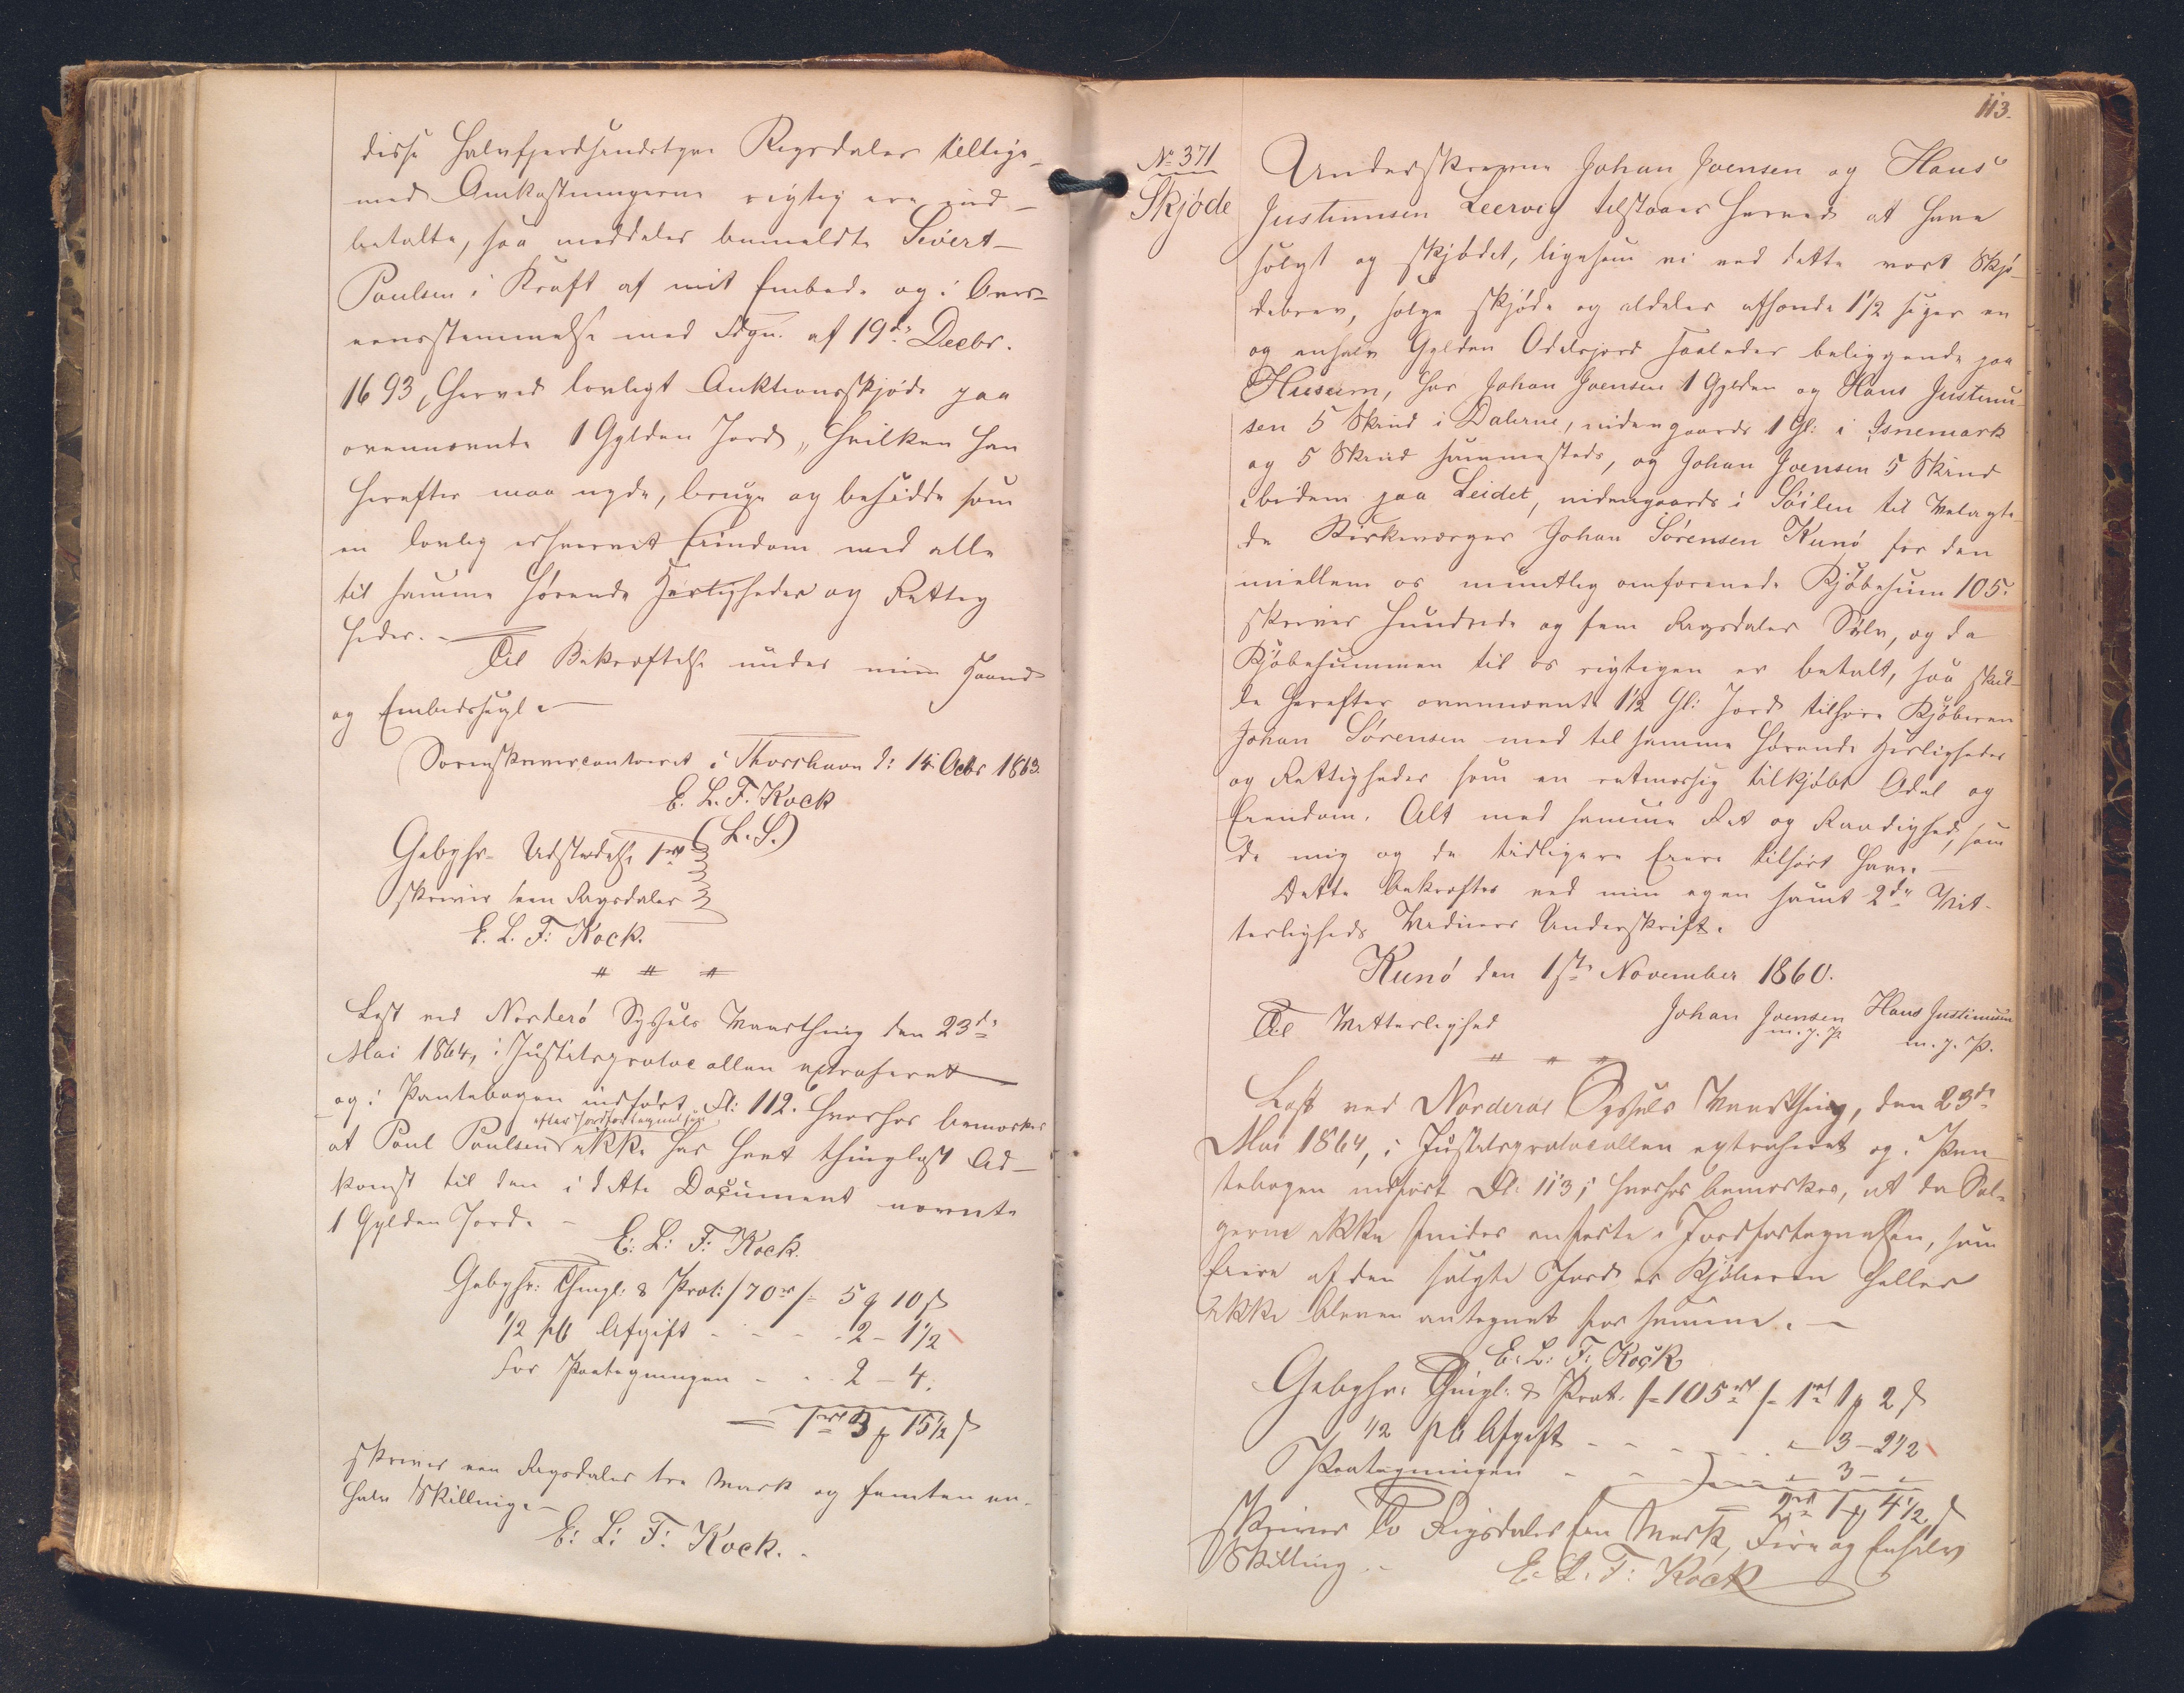 disse Halvfjerdsindstyve Rigsdaler tillige-
med Omkostningerne rigtig ere ind-
betalte, saa meddeles bemeldte Sivert
Poulsen i Kraft af mit Embede og i Over-
eensstemmelse med Fdgn. af 19de Decbr.
1693, herved lovligt Auktionsskjöde paa
ovennævnte 1 Gylden Jord, hvilken han
herefter maa nyde, bruge og besidde som
en lovlig erhvervet Eiendom med alle
til samme hørende Herligheder og Rettig
heder. -
Til Bekræftelse under min Haand
og Embedssegl. -
Sorenskrivercontoret i Thorshavn d: 14 Octbr 1863.
E. L. F. Kock
(L. S.)
Gebyhr. Udstedelse 1 rd
skriver een Rigsdaler
E. L. F: Kock.
Læst ved Norderö Syssels Vaarthing den 23de
Mai 1864, i Justitsprotocollen extraheret
og i Pantebogen indført Fl: 112. Hvorhos bemærkes
efter Jordfortegnelsen
at Poul Poulsen ikke har havt thinglæst Ad-
komst til den i dette Document nævnte
1 Gylden Jord. -
E: L: F: Kock.
Gebyhr: Thingl: & Prot: /70 rd/ 5 ₻ 10 ß
1/2 pCt Afgift - - - 2 - 1 1/2
For Paategningen - - 2 - 4.
= 1 rd 3 ₻ 15 1/2 ß
skriver een Rigsdaler tre Mark og femten en-
halv Skilling. -
E: L: F: Kock.
113.
No 371
Skjöde
Underskrevne Johan Joensen og Hans
Justinusen Leervig tilstaaer herved at have
solgt og skjödet, ligesom vi ved dette vort Skjö-
debrev, sælge skjöde og aldeles afhænde 1 1/2 siger en
og enhalv Gylden Odelsjord saaledes beliggende paa
Husum, har Johan Joensen 1 Gylden og Hans Justinu-
sen 5 Skind i Dalerne, nidengaards 1 Gl: i Isnemark
og 5 Skind sammesteds, og Johan Joensen 5 Skind
ibidem paa Leidet, nidengaards i Söilen til Velagte
de Kirkeværger Johan Sörensen Kunö for den
miellem os mundtlig omforenede Kjöbesum 105.
skriver Hundrede og fem Rigsdaler Sölv, og da
Kjöbesummen til os rigtigen er betalt, saa skul-
de herefter ovennævnte 1 1/2 Gl: Jord tilhøre Kjöberen
Johan Sörensen med til samme hørende Herligheder
og Rettigheder som en retmæssig tilkjöbt Odel og
Eiendom. Alt med samme Ret og Raadighed, som
de mig og de tidligere Eiere tilhört have. -
Dette bekræftes ved min egen samt 2de Vit-
terligheds Vidners Underskrift.
Kunö den 1ste November 1860.
Til Vitterlighed
Johan Joensen Hans Justinusen
m. f. P. m. f. P.
Læst ved Norderöes Syssels Vaarthing, den 23de
Mai 1864, i Justitsprotocollen extraheret og i Pan-
tebogen indført Fl: 113; hvorhos bemærkes, at da Sæl-
gerne ikke findes anførte i Jordfortegnelsen, som
Eiere af den solgte Jord er Kjöberen heller
ikke bleven antegnet for samme. -
E: L: F: Kock
Gebyhr. Thingl: & Prot. /105 rd/ 1 rd 1 ₻ 2 ß
1/2 pCt Afgift - - - 3 - 2 1/2
Paategningen - - - 3 -
2 rd 1 ₻ 4 1/2 ß
Skriver To Rigsdaler Een Mark, Fire og Enhalv
Skilling. -
E. L. F: Kock